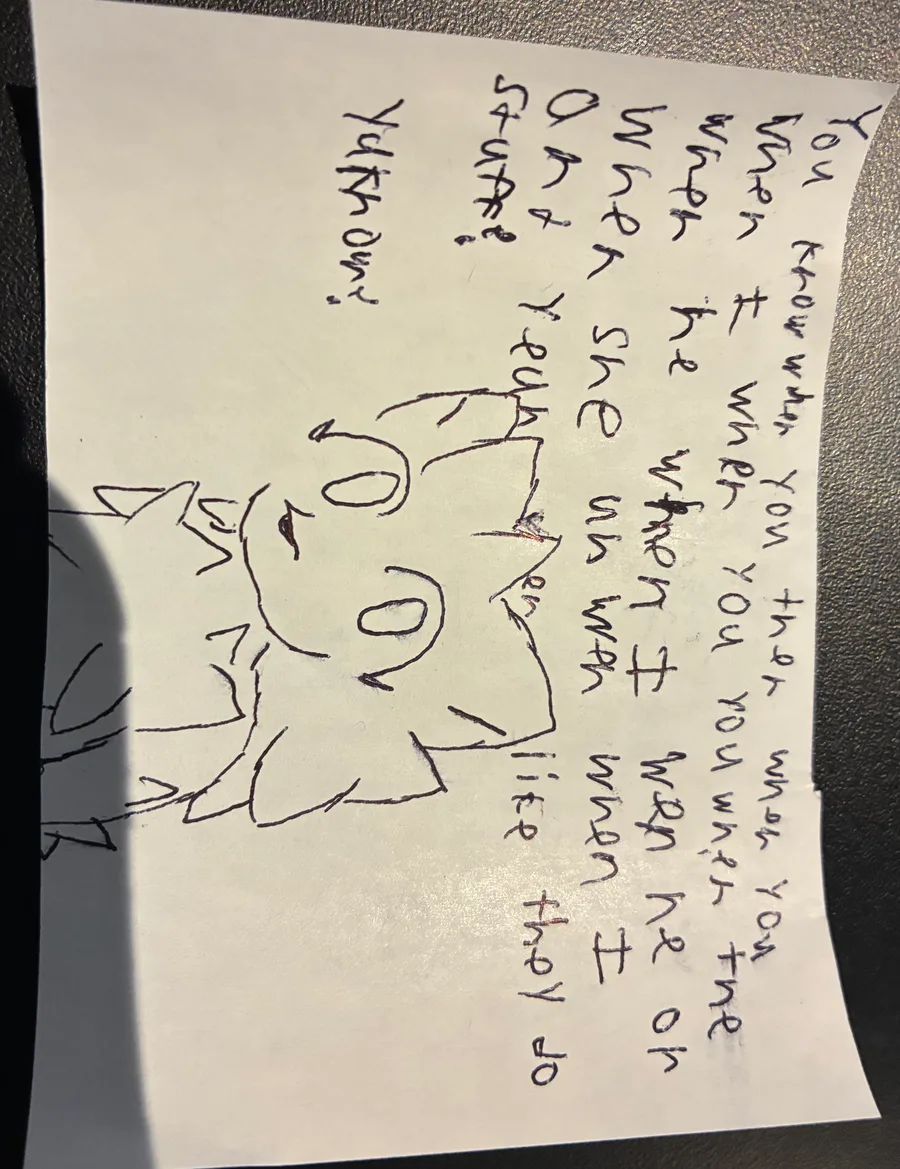 You know when you then when you
when I when you you when the
when he when I when he or
when she uh when when I
and yeah er like they do
stuff?
Yuknow?